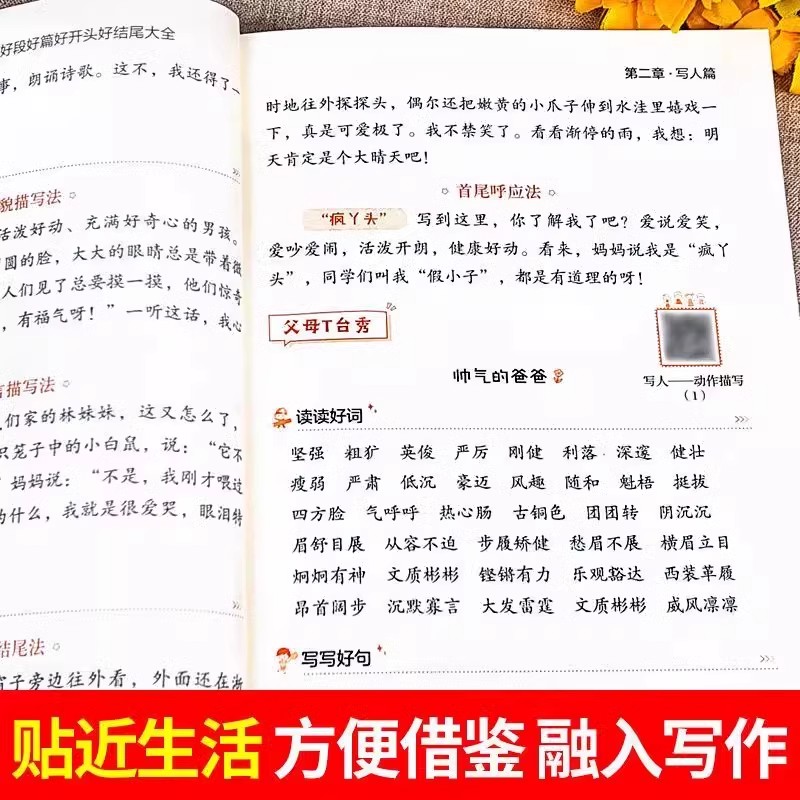 好段好篇好开头好结尾大全
事，朗诵诗歌。这不，我还得了一
貌描写法
活泼好动、充满好奇心的男孩。
圆的脸，大大的眼睛总是带着微
人们见了总要摸一摸，他们惊奇
，有福气呀！”一听这话，我心
言描写法
们家的林妹妹，这又怎么了，
只笼子中的小白鼠，说：“它不
妈妈说：“不是，我刚才喂过
的什么，我就是很爱哭，眼泪特
结尾法
窗子旁边往外看，外面还在淅
第二章·写人篇
时地往外探探头，偶尔还把嫩黄的小爪子伸到水洼里嬉戏一
下，真是可爱极了。我不禁笑了。看看渐停的雨，我想：明
天肯定是个大晴天吧！
首尾呼应法
“疯丫头” 写到这里，你了解我了吧？爱说爱笑，
爱吵爱闹，活泼开朗，健康好动。看来，妈妈说我是“疯丫
头”，同学们叫我“假小子”，都是有道理的呀！
父母T台秀
帅气的爸爸
写人——动作描写
（1）
读读好词
坚强 粗犷 英俊 严厉 刚健 利落 深邃 健壮
瘦弱 严肃 低沉 豪迈 风趣 随和 魁梧 挺拔
四方脸 气呼呼 热心肠 古铜色 团团转 阴沉沉
眉舒目展 从容不迫 步履矫健 愁眉不展 横眉立目
炯炯有神 文质彬彬 铿锵有力 乐观豁达 西装革履
昂首阔步 沉默寡言 大发雷霆 文质彬彬 威风凛凛
写写好句
贴近生活 方便借鉴 融入写作